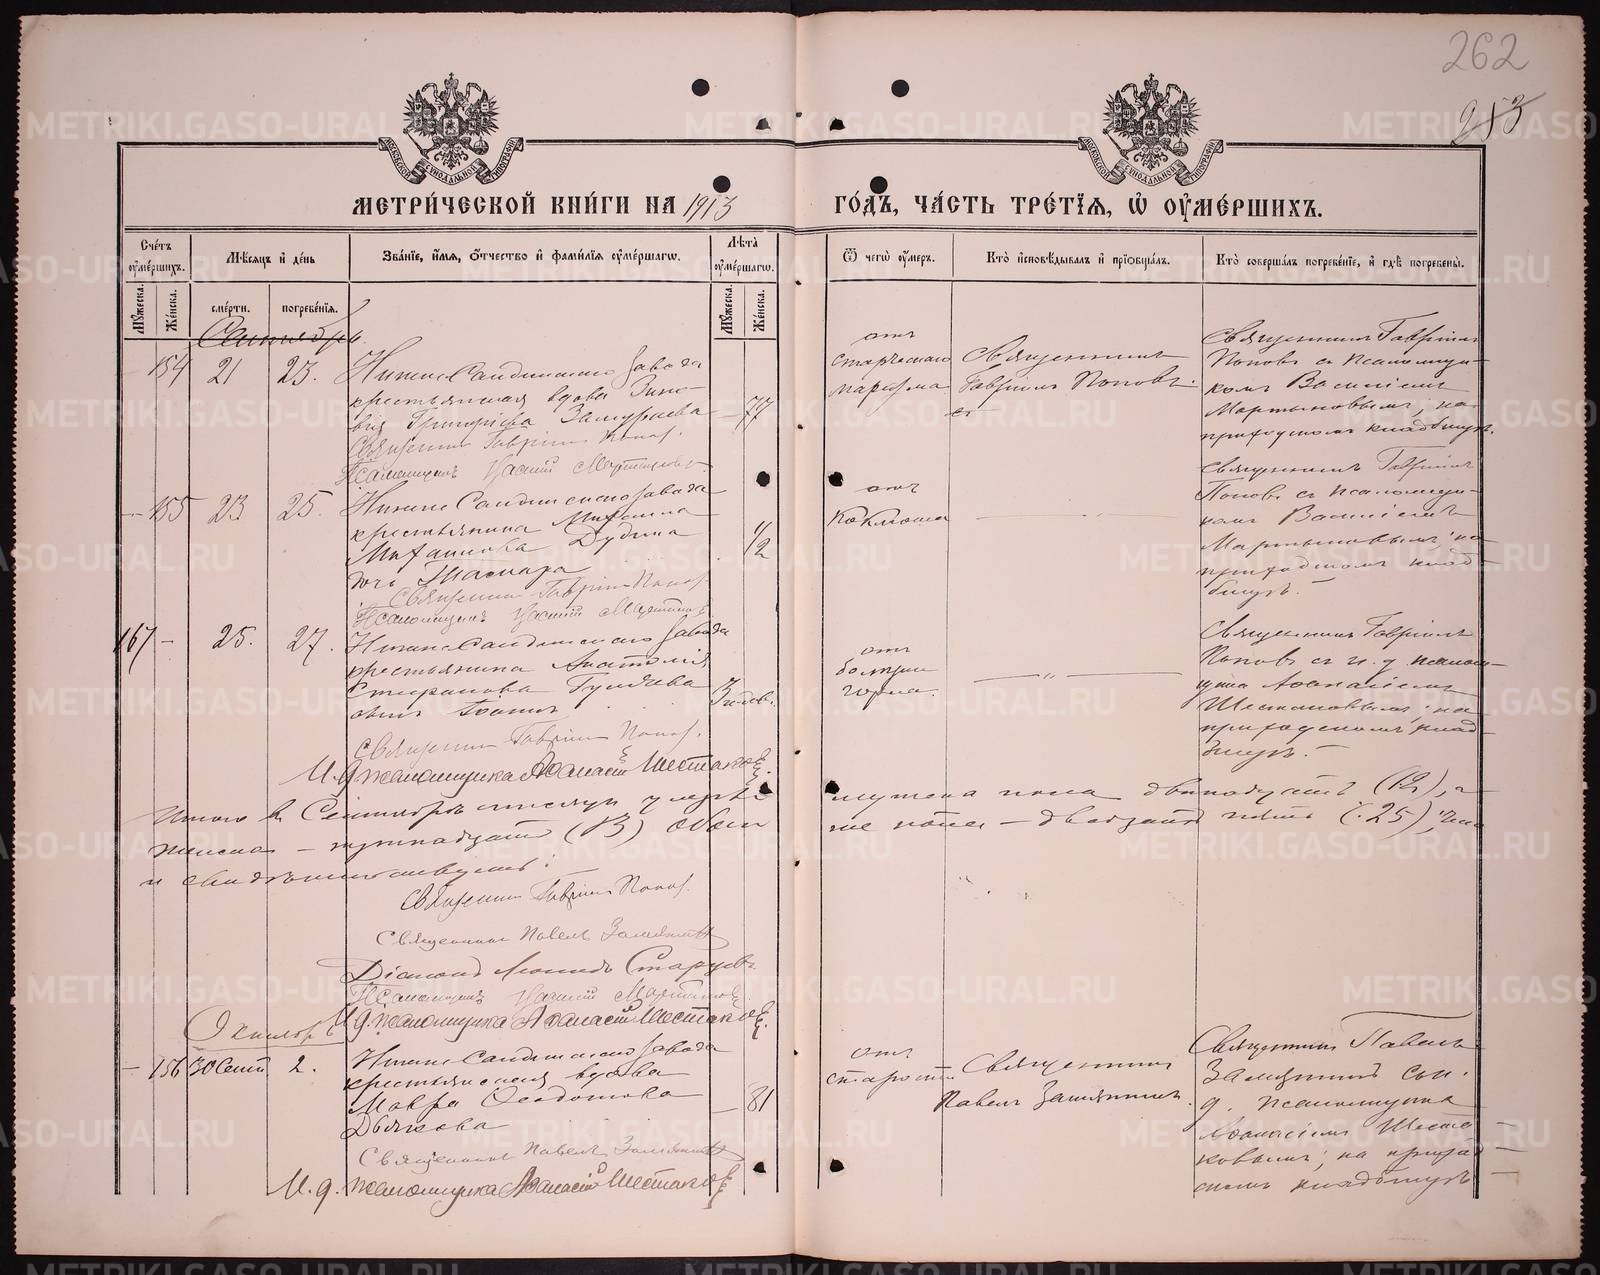 262
253
МЕТРИ́ЧЕСКОЙ КНИ́ГИ НА 1913
ГО́ДЪ, ЧА́СТЬ ТРЕ́ТІЯ, Ѿ ОУМЕ́РШИХЪ.
Сче́тъ оумершихъ.
Мѣсяцъ и день
Зва́ніе, и́мя, о́тчество и фами́лія оуме́ршагѡ.
Лѣта оуме́ршагѡ.
Ѿ чегѡ̀ оу́меръ.
Кто̀ и҆сповѣ́дывалъ и҆ прїѡбща́лъ.
Кто̀ соверша́лъ погребе́ніе, и҆ гдѣ̀ погребены̀.
Мужеска.
Женска.
смерти.
погребенія.
Мужеска.
Женска.
Сентябрь
154 21 23.
Нижне Салдинскаго завода
крестьянская вдова Зино-
вія Григоріева Замураева
77
Священник Гавріил Попов.
Псаломщикъ Василій Мартынов.
отъ
старческаго
маразма
Священникъ
Гавріилъ Поповъ.
Священникъ Гавріилъ
Поповъ съ псаломщи-
комъ Василіемъ
Мартыновымъ, на
приходскомъ кладбищѣ.
155 23 25.
Нижне Салдинскаго завода
крестьянина Михаила
Михайлова Дудина
дочь Тамара
1/2
Священник Гавріил Попов.
Псаломщикъ Василій Мартынов
отъ
коклюша
Священникъ Гавріилъ
Поповъ съ псаломщи-
комъ Василіемъ
Мартыновымъ на
приходскомъ клад-
бищѣ.
167 25. 27.
Нижне Салдинскаго завода
крестьянина Анатолія
Стефанова
сынъ Іоаннъ
Священник Гавріил Попов.
И. д. псаломщика Аѳанасій Шестаков.
отъ
болѣзни
горла.
Священникъ Гавріилъ
Поповъ съ и. д. псалом-
щика Аѳанасіемъ
Шестаковымъ, на
приходскомъ клад-
бищѣ.
Итого въ Сентябрѣ мѣсяцѣ умерло
мужеска пола двѣнадцать (12), а
женска – тринадцать (13) обоего
же пола – двадцать пять (25),
и свидѣтельствуемъ:
Священник Гавріил Попов.
Священник Павел Замятин
Діаконъ Леонидъ Старцевъ
Псаломщикъ Василій Мартынов
И. д. псаломщика Аѳанасій Шестаков.
Октябрь
156 30 Сент 2.
Нижне Салдинскаго завода
крестьянская вдова
Мавра Ѳедотова
Дьячкова
81
Священник Павел Замятин
И. д. псаломщика Аѳанасій Шестаков
отъ
старости
Священникъ
Павелъ Замятинъ.
Священникъ Павелъ
Замятинъ съ и.
д. псаломщика
Аѳанасіемъ Шеста-
ковымъ, на приход-
скомъ кладбищѣ
METRIKI.GASO-URAL.RU